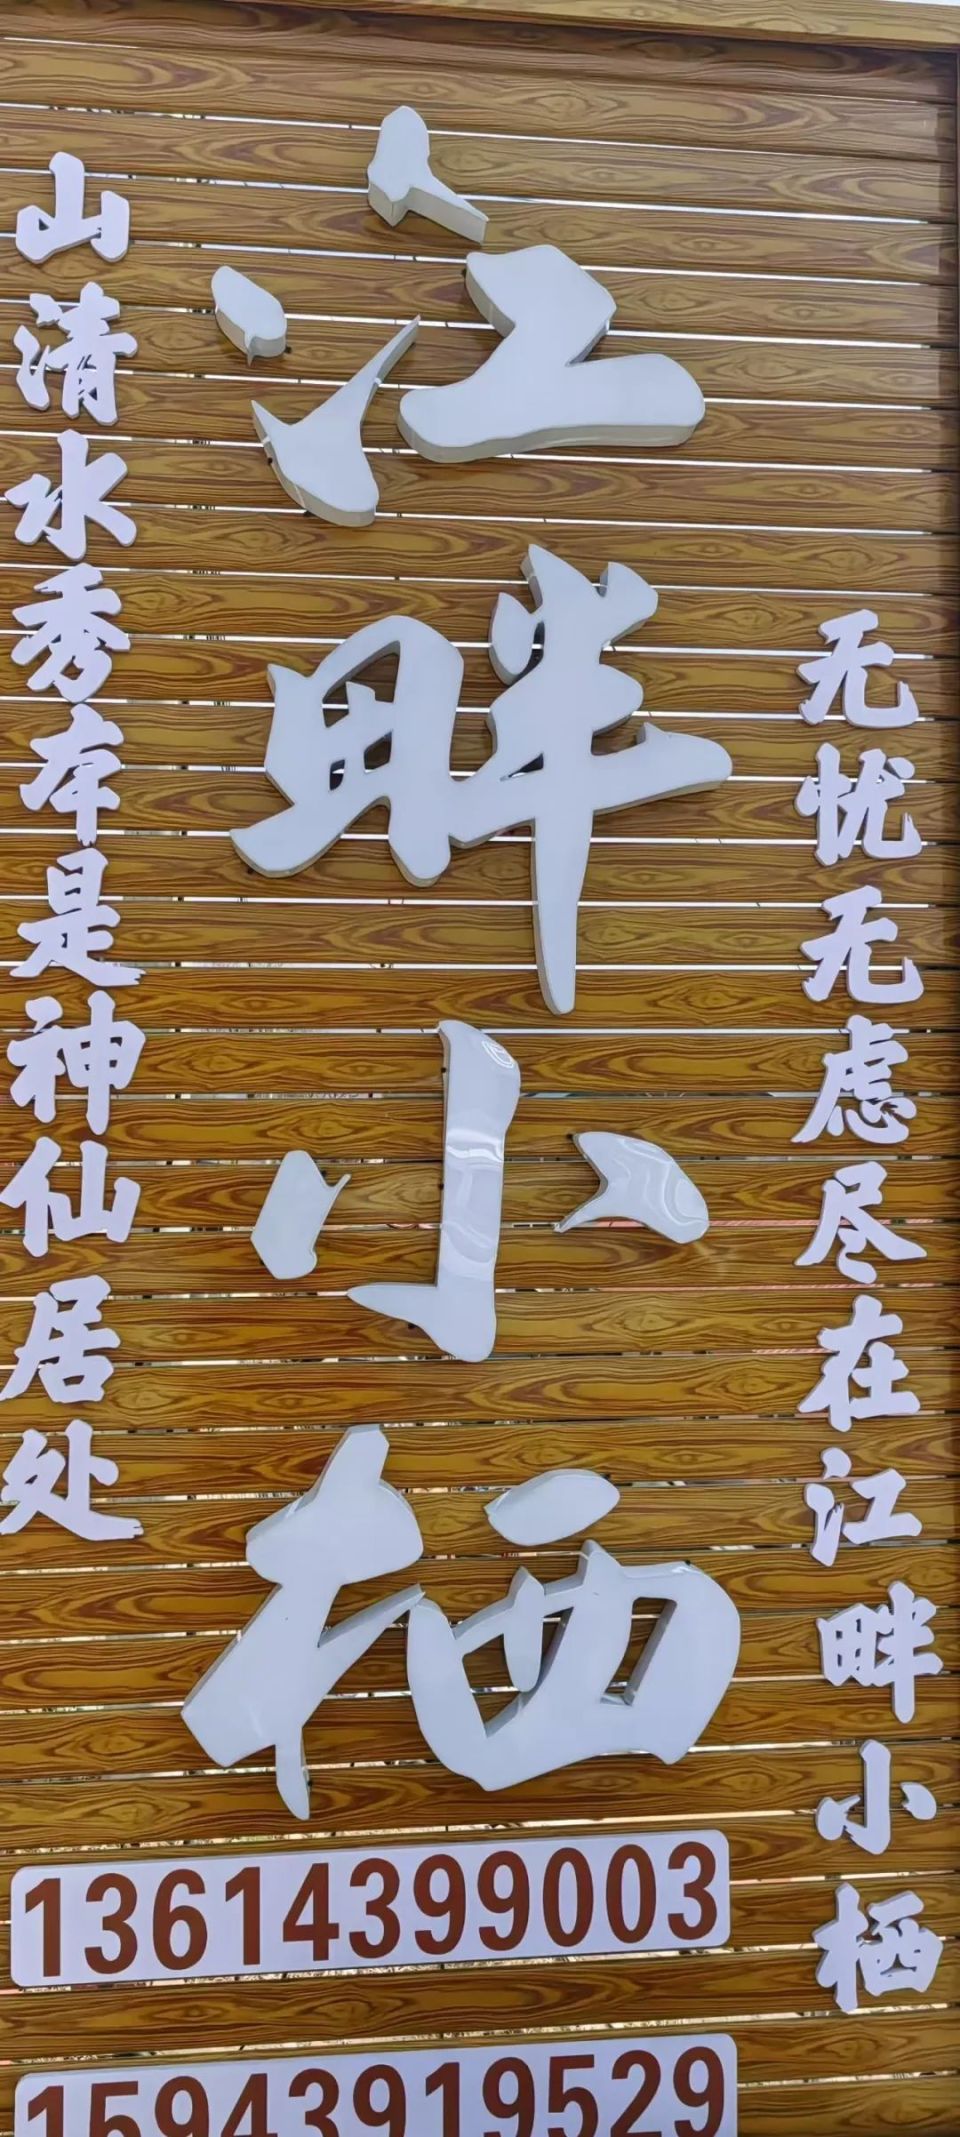 山清水秀本是神仙居处
江畔小栖
无忧无虑尽在江畔小栖
13614399003
15943919529